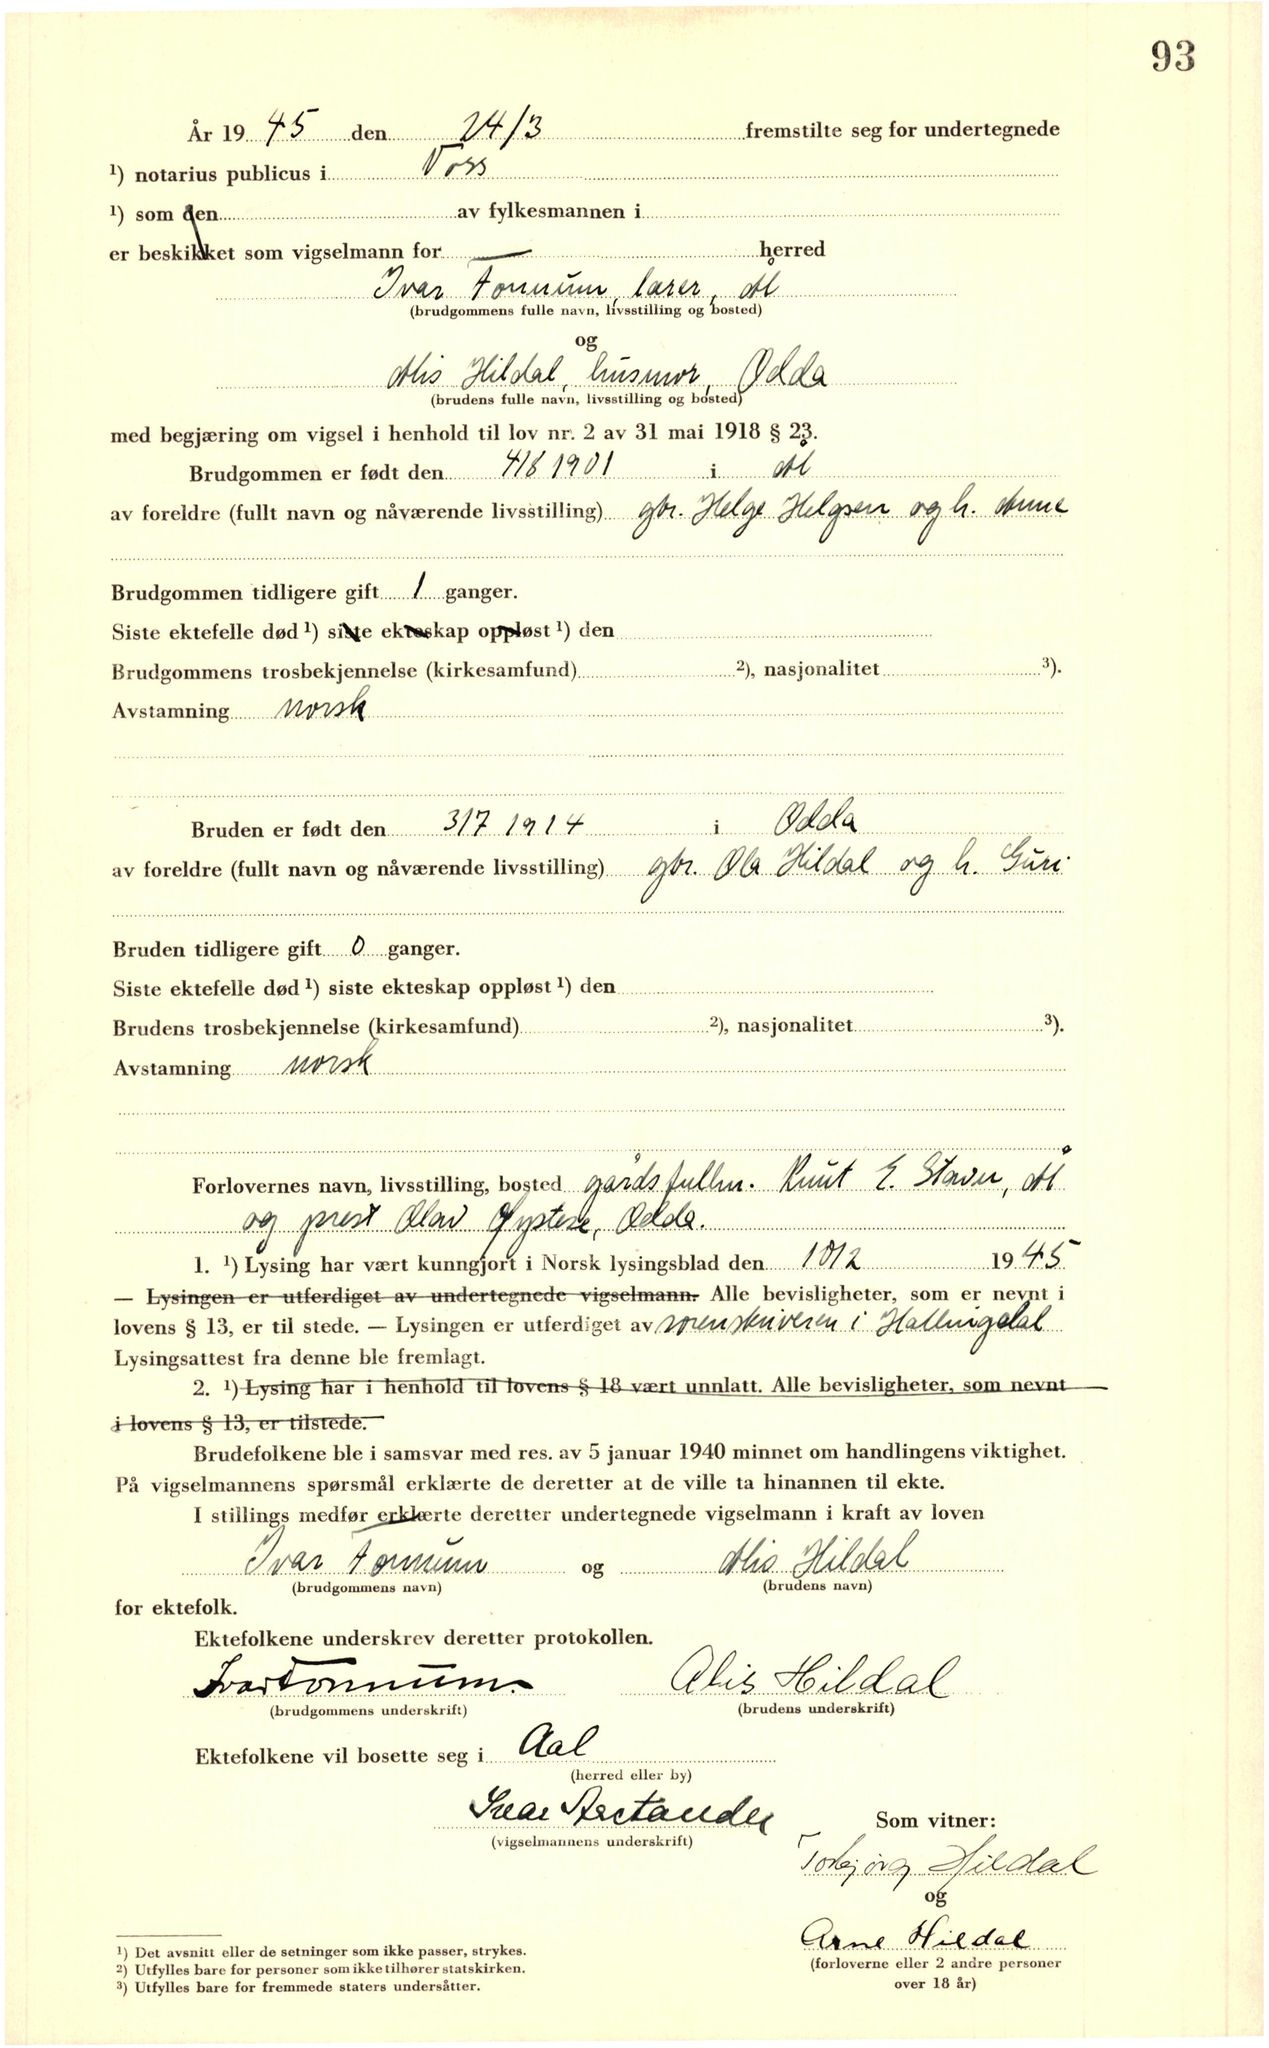 93
År 19 45 den 24/3 fremstilte seg for undertegnede
¹) notarius publicus i Voss
¹) som den av fylkesmannen i
er beskikket som vigselmann for — herred
Ivar Tonnum, lærer, Ål
(brudgommens fulle navn, livsstilling og bosted)
og
Alis Hildal, husmor, Odda
(brudens fulle navn, livsstilling og bosted)
med begjæring om vigsel i henhold til lov nr. 2 av 31 mai 1918 § 23.
Brudgommen er født den 4/8 1901 i Ål
av foreldre (fullt navn og nåværende livsstilling) gbr. Helge Helgsen og h. Anne
Brudgommen tidligere gift 1 ganger.
Siste ektefelle død ¹) siste ekteskap oppløst ¹) den
Brudgommens trosbekjennelse (kirkesamfund) ²), nasjonalitet ³).
Avstamning norsk
Bruden er født den 3/7 1914 i Odda
av foreldre (fullt navn og nåværende livsstilling) gbr. Ola Hildal og h. Guri
Bruden tidligere gift 0 ganger.
Siste ektefelle død ¹) siste ekteskap oppløst ¹) den
Brudens trosbekjennelse (kirkesamfund) ²), nasjonalitet ³).
Avstamning norsk
Forlovernes navn, livsstilling, bosted gårdsfullm. Knut E. Staver, Ål
og prest Olav Øystese, Odda.
1. ¹) Lysing har vært kunngjort i Norsk lysingsblad den 10/2 19 45
— Lysingen er utferdiget av undertegnede vigselmann. Alle bevisligheter, som er nevnt i
lovens § 13, er til stede. — Lysingen er utferdiget av sorenskriveren i Hallingdal
Lysingsattest fra denne ble fremlagt.
2. ¹) Lysing har i henhold til lovens § 18 vært unnlatt. Alle bevisligheter, som nevnt
i lovens § 13, er tilstede.
Brudefolkene ble i samsvar med res. av 5 januar 1940 minnet om handlingens viktighet.
På vigselmannens spørsmål erklærte de deretter at de ville ta hinannen til ekte.
I stillings medfør erklærte deretter undertegnede vigselmann i kraft av loven
Ivar Tonnum og Alis Hildal
(brudgommens navn) (brudens navn)
for ektefolk.
Ektefolkene underskrev deretter protokollen.
Ivar Tonnum. Alis Hildal
(brudgommens underskrift) (brudens underskrift)
Ektefolkene vil bosette seg i Aal
(herred eller by)
Ivar Arctander
(vigselmannens underskrift)
Som vitner:
Torbjørg Hildal
og
Arne Hildal
(forloverne eller 2 andre personer
over 18 år)
¹) Det avsnitt eller de setninger som ikke passer, strykes.
²) Utfylles bare for personer som ikke tilhører statskirken.
³) Utfylles bare for fremmede staters undersåtter.